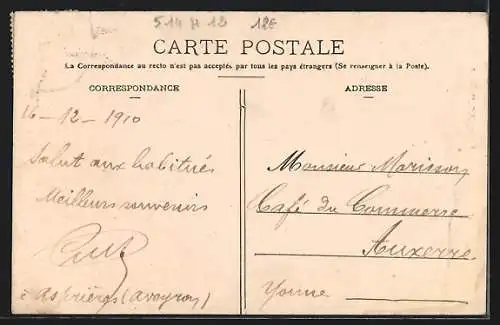 514 H 13 12€
CARTE POSTALE
La Correspondance au recto n'est pas acceptée par tous les pays étrangers (Se renseigner à la Poste).
CORRESPONDANCE
16-12-1910
Salut aux habitués
Meilleurs souvenirs
à Asprières (Aveyron)
ADRESSE
Monsieur Marisson
Café du Commerce
Auxerre
Yonne